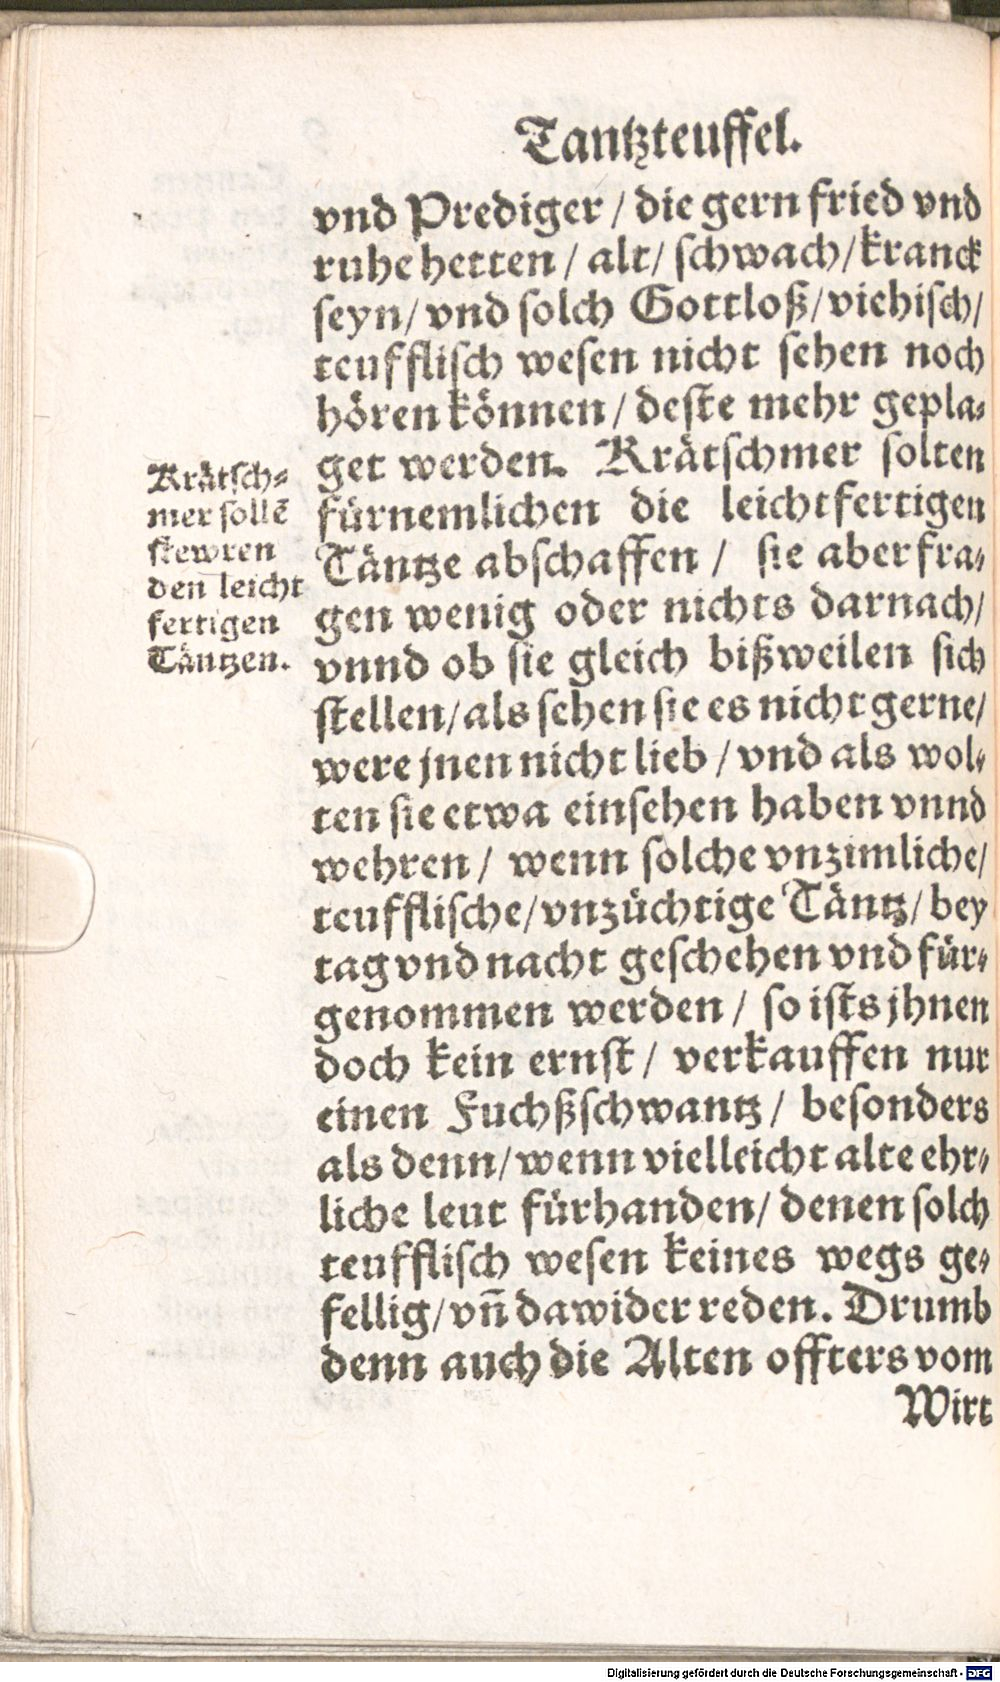 Tantzteuffel.
vnd Prediger / die gern fried vnd
ruhe hetten / alt / schwach / kranck
seyn / vnd solch Gottloß / viehisch /
teufflisch wesen nicht sehen noch
hören können / deste mehr gepla-
get werden. Krätschmer solten
fürnemlichen die leichtfertigen
Täntze abschaffen / sie aber fra-
gen wenig oder nichts darnach /
vnnd ob sie gleich bißweilen sich
stellen / als sehen sie es nicht gerne /
were jnen nicht lieb / vnd als wol-
ten sie etwa einsehen haben vnnd
wehren / wenn solche vnzimliche /
teufflische / vnzüchtige Täntz / bey
tag vnd nacht geschehen vnd für-
genommen werden / so ists jhnen
doch kein ernst / verkauffen nur
einen Fuchßschwantz / besonders
als denn / wenn vielleicht alte ehr-
liche leut fürhanden / denen solch
teufflisch wesen keines wegs ge-
fellig / vñ dawider reden. Drumb
denn auch die Alten offters vom
Wirt
Krätsch-
mer sollẽ
stewren
den leicht
fertigen
Täntzen.
Digitalisierung gefördert durch die Deutsche Forschungsgemeinschaft - DFG